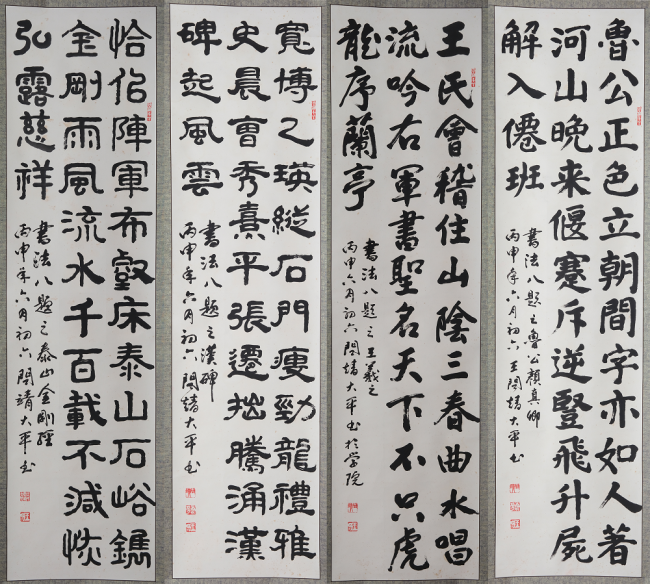 魯公正色立朝間字亦如人著
河山晚来偃蹇斥逆豎飛升屍
解入僊班
書法八题之魯公顏真卿
丙申年六月初六王閎靖大平书
王氏會稽住山陰三春曲水唱
流吟右軍書聖名天下不只虎
龍序蘭亭
書法八题之王羲之
丙申六月初六閎靖大平书於学院
寬博乙瑛縱石門瘦勁龍禮雅
史晨曹秀熹平張遷拙騰涌漢
碑起風雲
書法八题之漢碑
丙申年六月初六閎靖大平书
恰佀陣軍布壑床泰山石峪鐫
金剛雨風流水千百載不減恢
弘露慈祥
書法八题之泰山金剛經
丙申年六月初六閎靖大平书